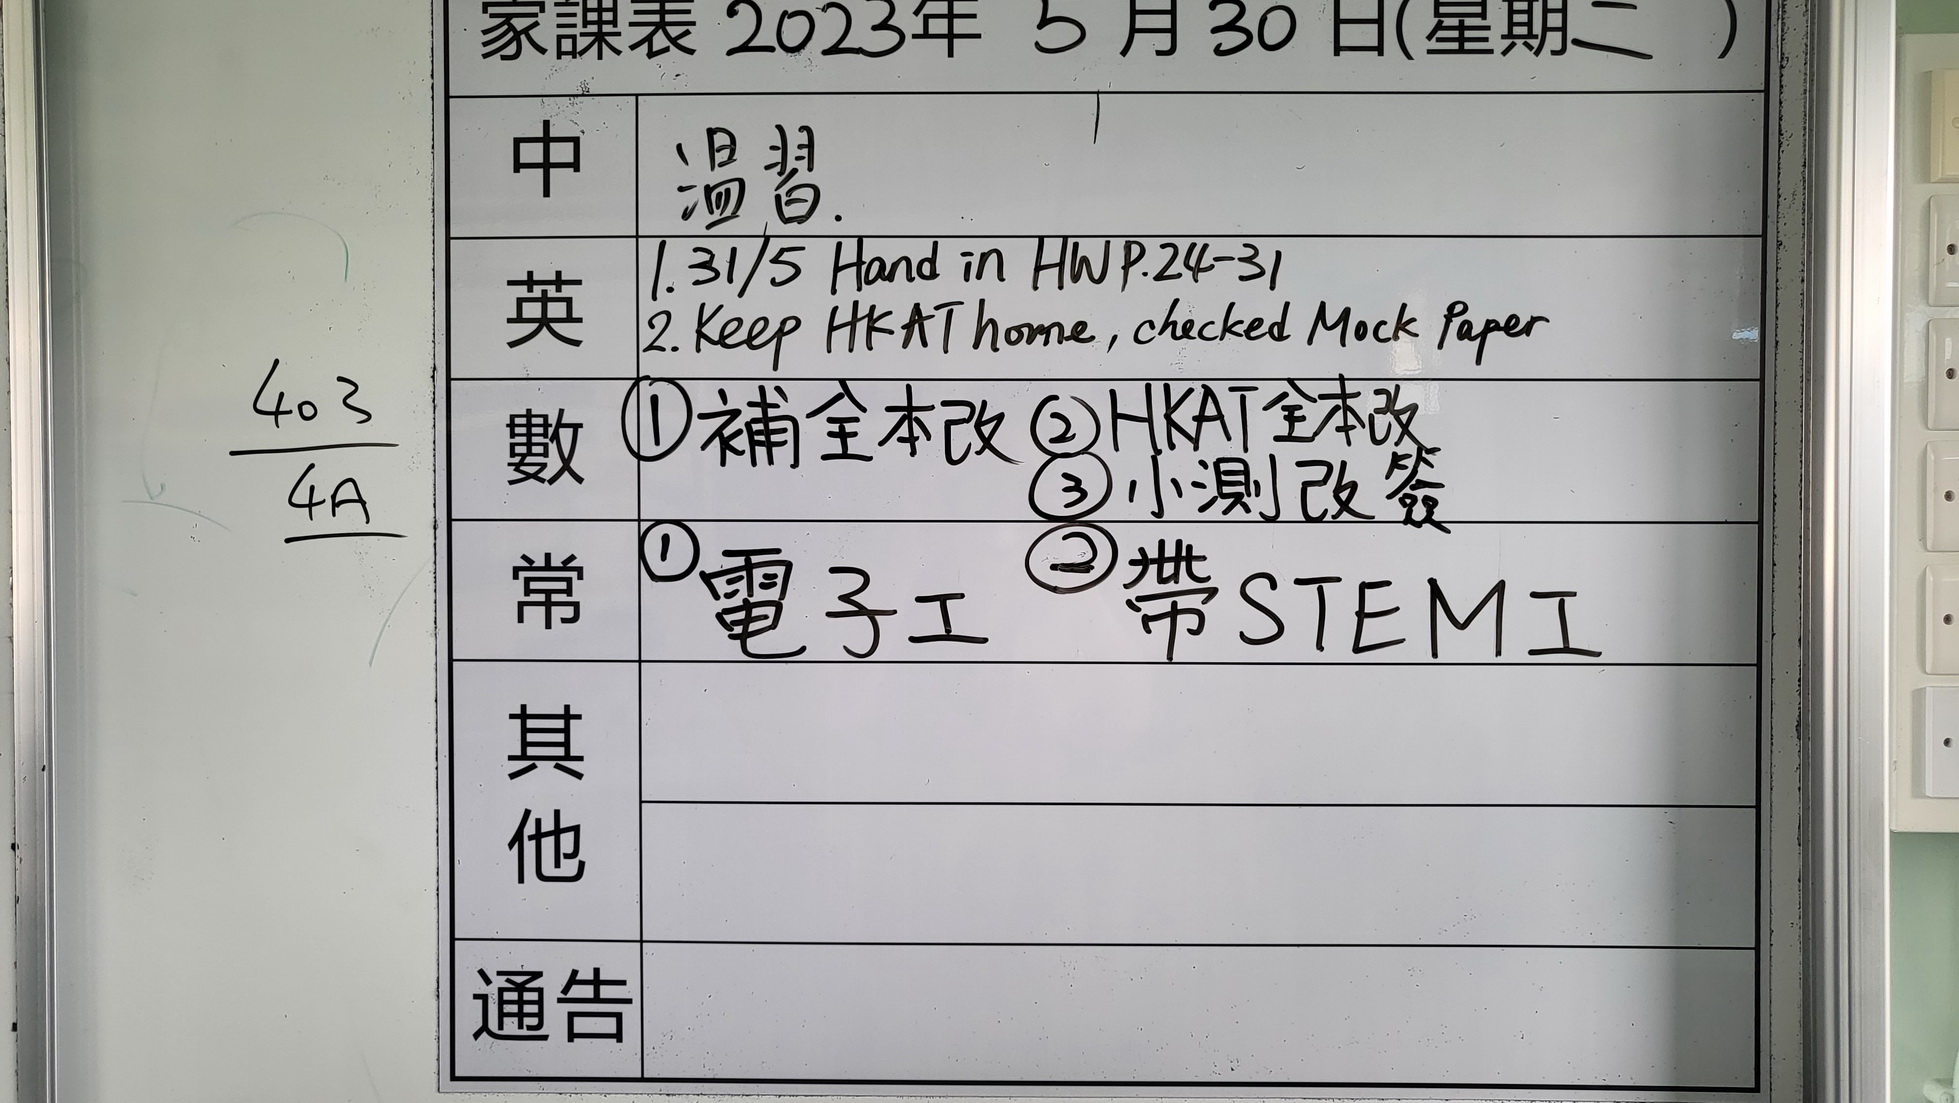 家課表 2023年 5月30日(星期二 )
中
溫習.
英
1. 31/5 Hand in HW P.24-31
2. Keep HKAT home, checked Mock Paper
數
①補全本改 ②HKAT全本改
③小測改簽
常
①電子工 ②帶STEM工
其他
通告
403
4A